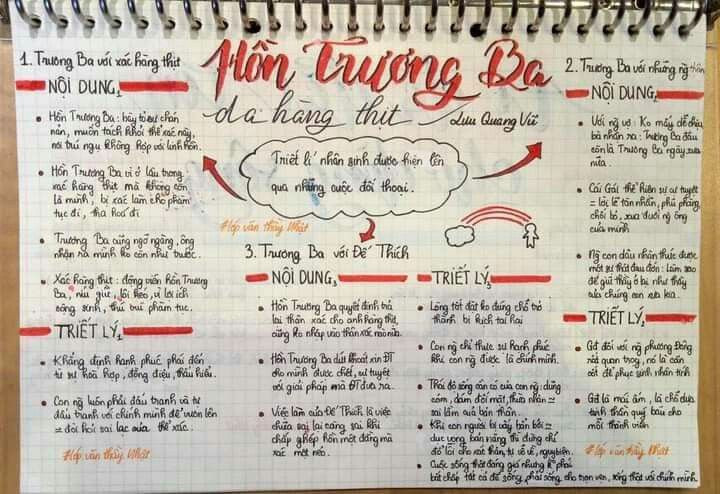 Hồn Trương Ba
da hàng thịt
Lưu Quang Vũ
Triết lí nhân sinh được hiện lên
qua những cuộc đối thoại.
#lớp văn thầy Nhật
1. Trương Ba với xác hàng thịt
NỘI DUNG1
• Hồn Trương Ba: bày tỏ sự chán
nản, muốn tách khỏi thể xác này,
nơi trú ngụ không hợp với linh hồn.
• Hồn Trương Ba vì ở lâu trong
xác hàng thịt mà không còn
là mình, bị xác làm cho phàm
tục đi, tha hoá đi
• Trương Ba cũng ngỡ ngàng, ông
nhận ra mình ko còn như trước.
• Xác hàng thịt: động viên Hồn Trương
Ba, níu giữ, lôi kéo, vì lợi ích
sống sinh, thú vui phàm tục.
TRIẾT LÝ1
• Khẳng định hạnh phúc phải đến
từ sự hoà hợp, đồng điệu, thấu hiểu.
• Con ng luôn phải đấu tranh và tự
đấu tranh với chính mình để vươn lên
= đòi hỏi sai lạc của thể xác.
#lớp văn thầy Nhật
2. Trương Ba với những ng thân
NỘI DUNG2
• Với ng vợ: Ko mấy dễ chịu
bà nhấn ra: Trương Ba đâu
còn là Trương Ba ngày xưa
nữa.
• Cái Gái thể hiện sự cự tuyệt
= lời lẽ tàn nhẫn, phũ phàng,
chối bỏ, xua đuổi ng ông
của mình
• Ng con dâu nhận thức được
một sự thật đau đớn: Làm sao
để giữ thầy ở bị như thầy
của chúng con xưa kia.
TRIẾT LÝ2
• Gđ đối với ng phương Đông
rất quan trọng, nó là cần
cốt để phục sinh nhân tính
• Gđ là mái ấm, là chỗ dựa
tinh thần quý báu cho
mỗi thành viên
#lớp văn thầy Nhật
3. Trương Ba với Đế Thích
NỘI DUNG3
• Hồn Trương Ba quyết định trả
lại thân xác cho anh hàng thịt,
cũng ko nhập vào thân xác nào nữa.
• Hồn Trương Ba dứt khoát xin ĐT
cho mình được chết, cự tuyệt
với giải pháp mà ĐT đưa ra.
• Việc làm của Đế Thích là việc
chữa sai lại càng sai khi
chắp ghép hồn một đằng mà
xác một nẻo.
TRIẾT LÝ3
• Lòng tốt đặt ko đúng chỗ trở
thành bi kịch tai hại
• Con ng chỉ thực sự hạnh phúc
khi con ng được là chính mình.
• Thái độ sống cần có của con ng: dũng
cảm, dám đối mặt, thừa nhận =
sai lầm quá bản thân.
• Khi con người bị vây bẩn bởi =
dục vọng, bản năng thì đừng chỉ
đổ lỗi cho xác thân, tự vỗ về, ngụy biện.
• Cuộc sống thật đáng giá nhưng k phải
bất chấp tất cả để sống, phải sống cho trọn vẹn, sống thật với chính mình.